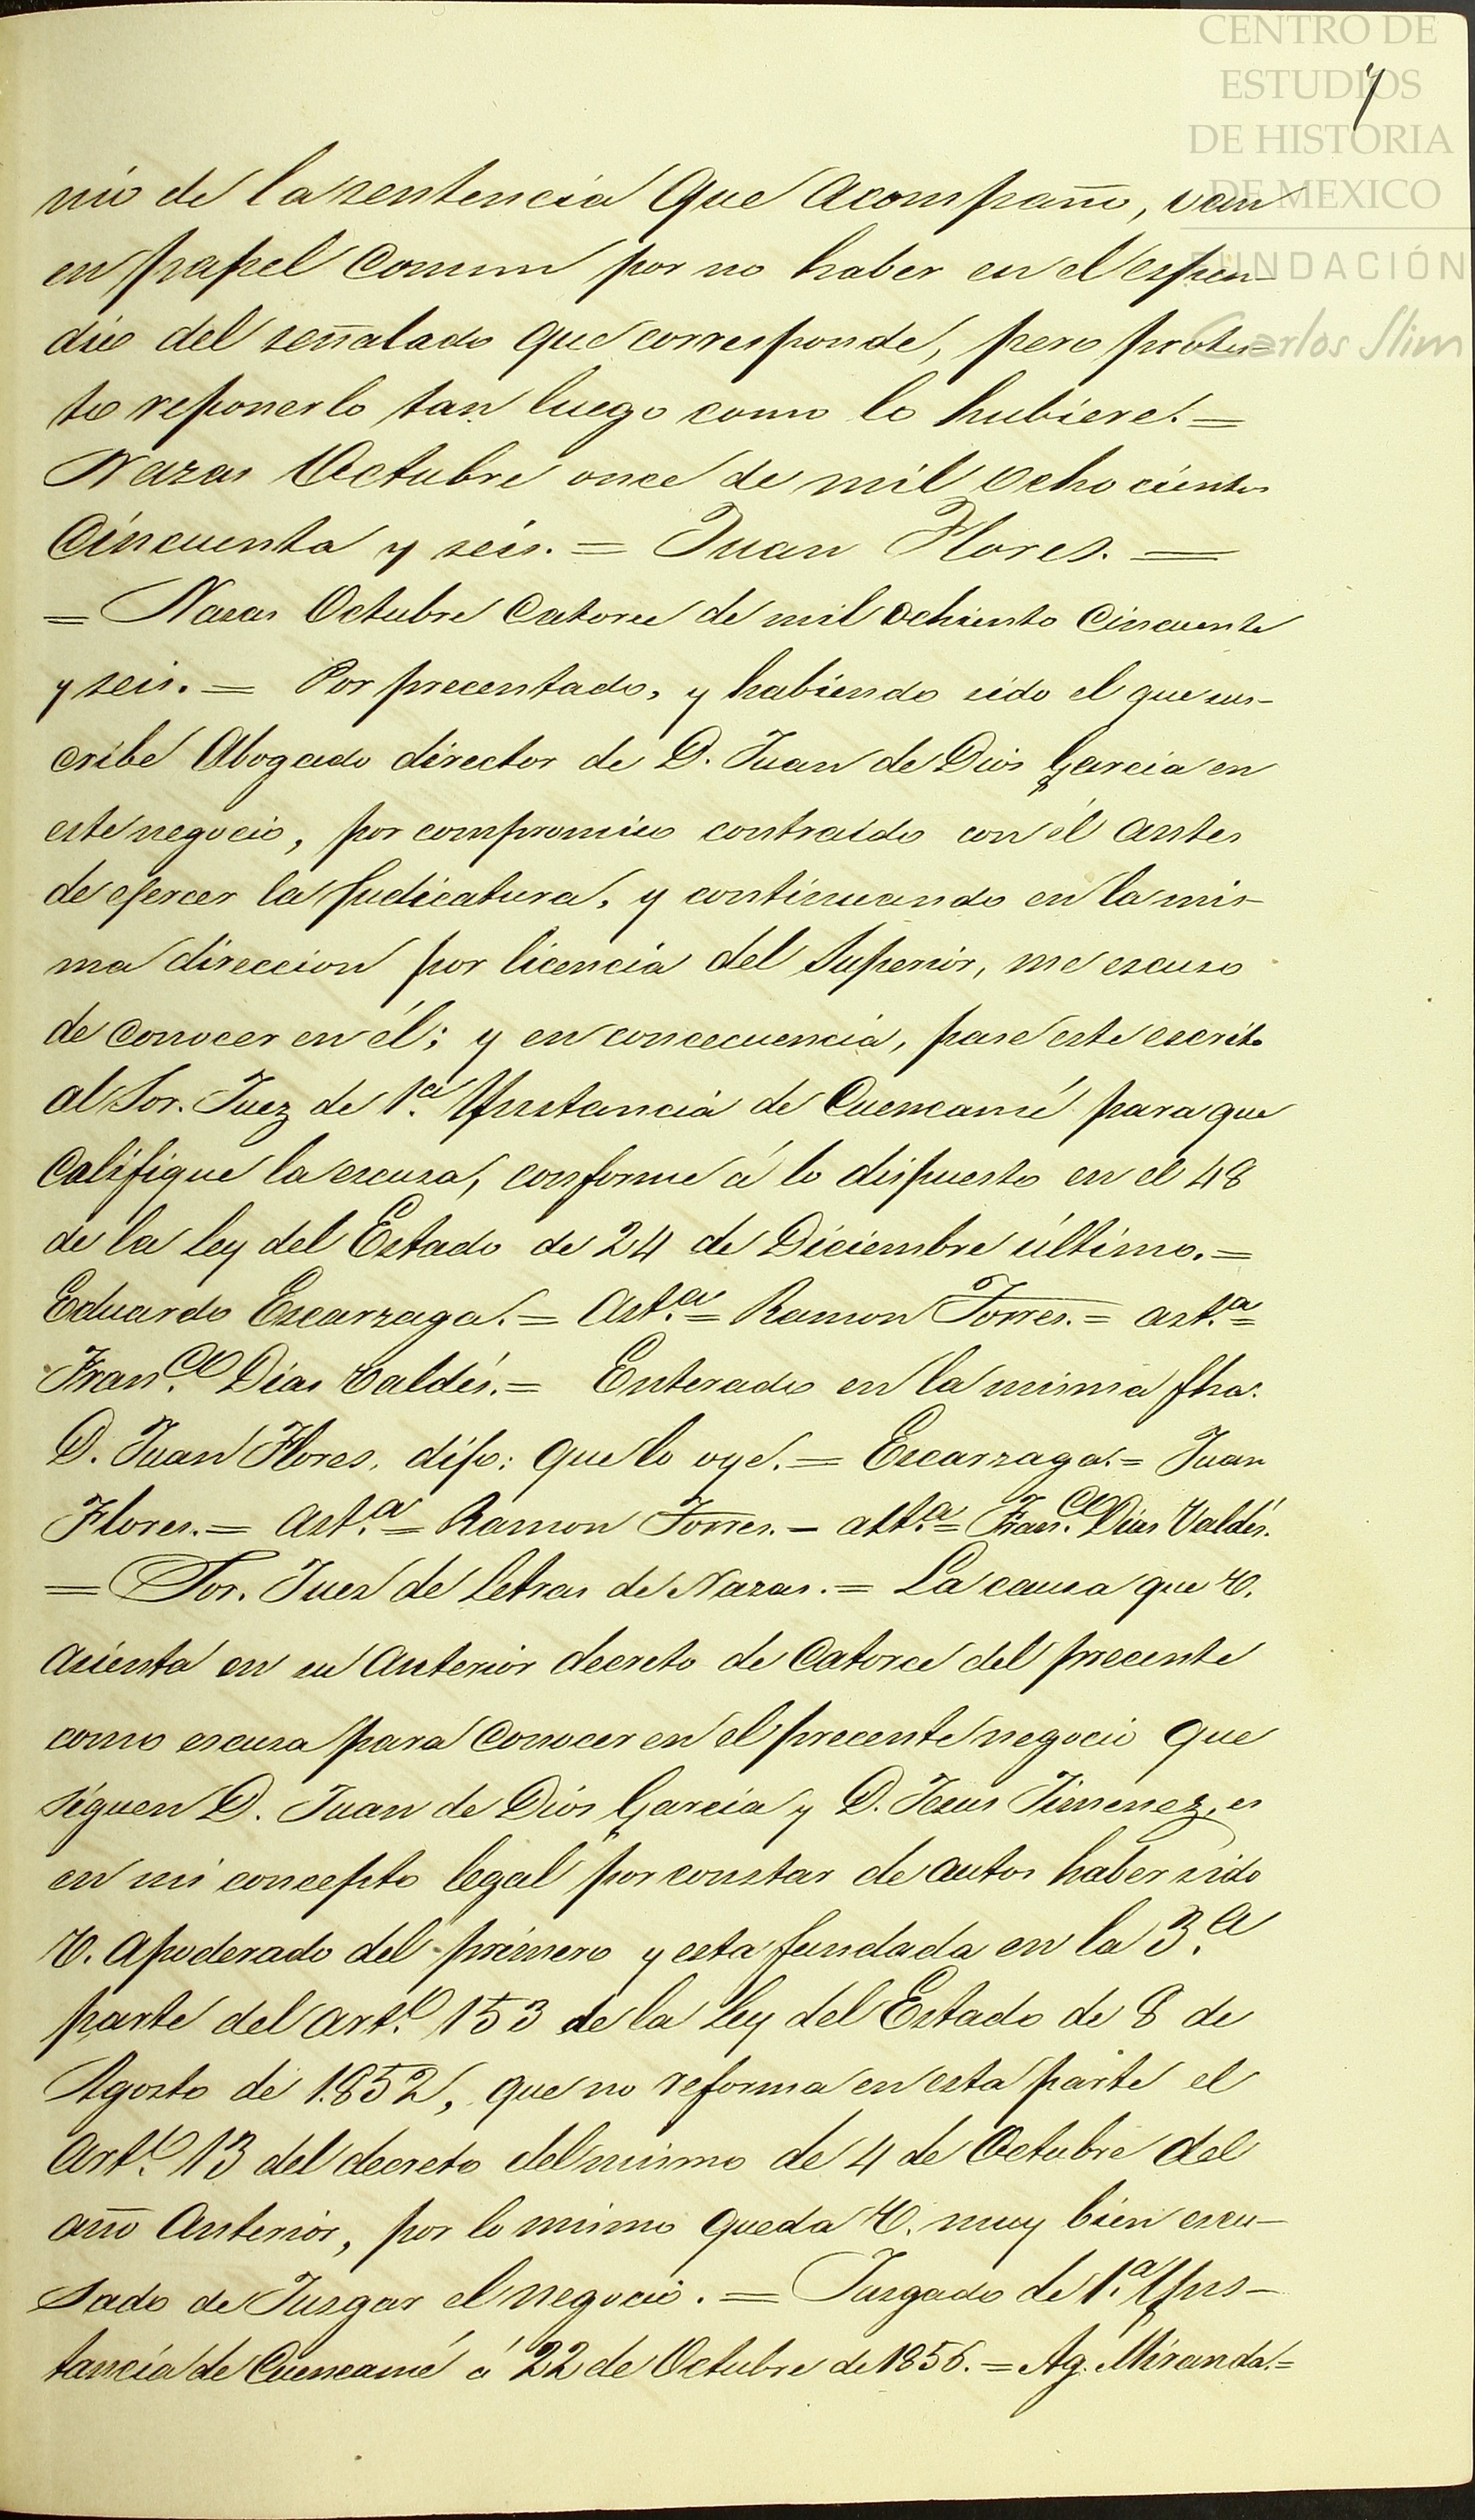 CENTRO DE
ESTUDIOS
DE HISTORIA
DE MEXICO
FUNDACIÓN
Carlos Slim
7
nio de la sentencia que acompaño, van
en papel comun por no haber en el espen-
dio del señalado que corresponde, pero protes-
to reponerlo tan luego como lo hubiere. =
Nazas Octubre once de mil ochocientos
Cincuenta y seis. = Juan Flores. =
= Nazas Octubre Catorce de mil ochiento Cincuenta
y seis. = Por precentado, y habiendo sido el que sus-
cribe Abogado director de D. Juan de Dios Garcia en
este negocio, por compromiso contraido con él antes
de ejercer la Judicatura, y continuando en la mis-
ma direccion por licencia del Superior, me escuso
de conocer en él; y en concecuencia, pase este escrito
al Sor. Juez de 1.ª Ynstancia de Cuencamé para que
Califique la escusa, conforme á lo dispuesto en el 48
de la ley del Estado de 24 de Diciembre último. =
Eduardo Escarzaga. = Ast.ª = Ramon Torres. = ast.ª =
Fran.co Dias Valdés. = Enterado en la misma fha.
D. Juan Flores, dijo: que lo oye. = Escarzaga. = Juan
Flores. = Ast.ª = Ramon Torres. = ast.ª = Fran.co Dias Valdés.
= Sor. Juez de letras de Nazas. = La causa que V.
acienta en su anterior decreto de Catorce del precente
como escusa para Conocer en el precente negocio que
siguen D. Juan de Dios Garcia y D. Jesus Jimenez, es
en mi concepto legal por constar de autos haber sido
V. apoderado del primero y esta fundada en la 3.ª
parte del art.o 153 de la Ley del Estado de 8 de
Agosto de 1852, que no reforma en esta parte el
art.o 13 del decreto del mismo de 4 de Octubre del
año Anterior, por lo mismo queda V. muy bien escu-
sado de Jusgar el negocio. = Jusgado de 1.ª Yns-
tancia de Cuencamé á 22 de Octubre de 1856. = Ag. Miranda. =